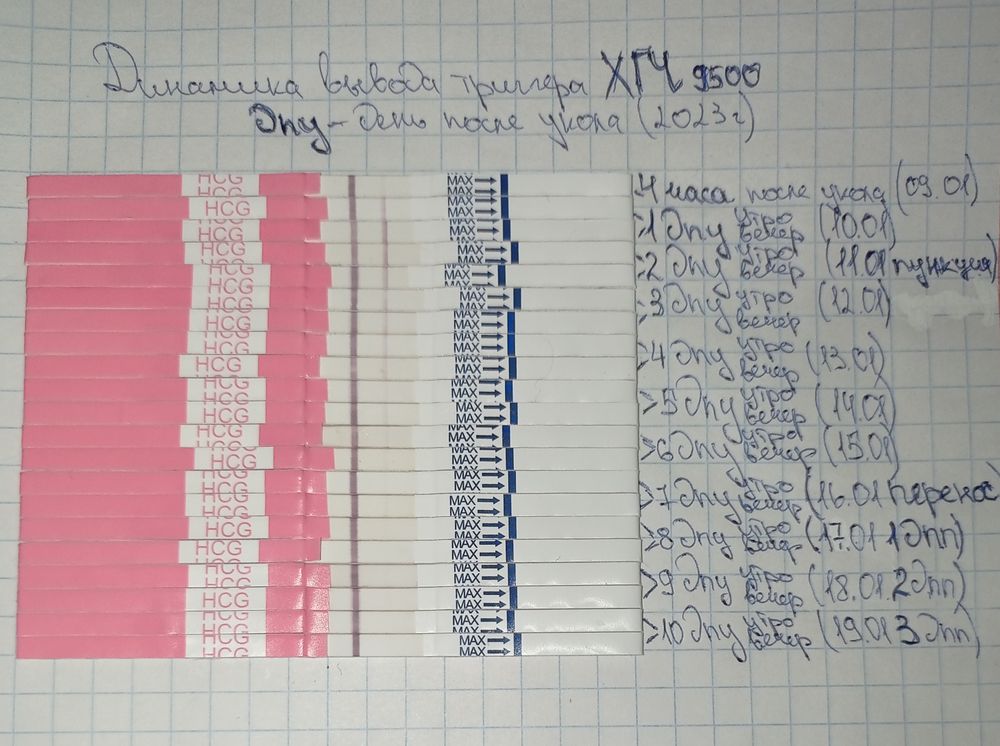 Динамика вывода триггера ХГЧ 9500
Дпу - День после укола (2023 г)
HCG MAX 4 часа после укола (09.01)
HCG MAX
HCG MAX 1 Дпу утро вечер (10.01)
HCG MAX
HCG MAX 2 Дпу утро вечер (11.01 пункция)
HCG MAX
HCG MAX 3 Дпу утро вечер (12.01)
HCG MAX
HCG MAX 4 Дпу утро вечер (13.01)
HCG MAX
HCG MAX 5 Дпу утро вечер (14.01)
HCG MAX
HCG MAX 6 Дпу утро вечер (15.01)
HCG MAX
HCG MAX 7 Дпу утро вечер (16.01 перенос)
HCG MAX
HCG MAX 8 Дпу утро вечер (17.01 1 Дпп)
HCG MAX
HCG MAX 9 Дпу утро вечер (18.01. 2 Дпп)
HCG MAX
HCG MAX 10 Дпу утро вечер (19.01 3 Дпп)